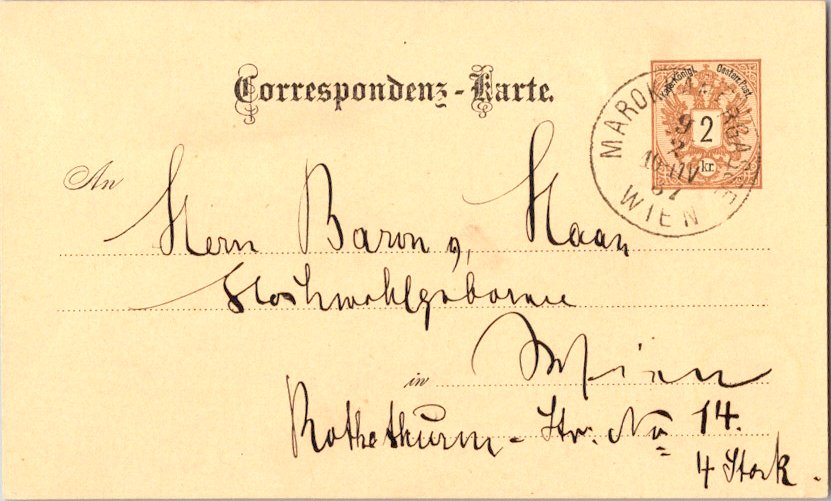 Correspondenz-Karte.
Kais. Königl. Oesterr. Post.
2
kr.
MAROKKANERGASSE
9
2
WIEN
An
Herrn Baron v. Haan
Hochwohlgeboren
in Wien
Rothethurm-Str. No 14.
4 Stock.